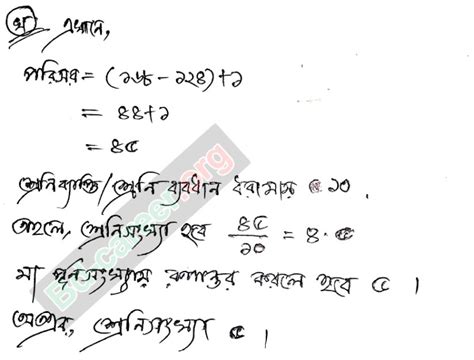 (খ) এখানে,
পরিসর = (১৬৮ - ১২৪) + ১
= ৪৪ + ১
= ৪৫
শ্রেনিব্যাপ্তি / শ্রেনি ব্যবধান ধরামায় ৫ ১০.
তাহলে, শ্রেনিসংখ্যা হবে ৪৫/১০ = ৪.৫
মা পূর্নসংখ্যায় রূপান্তর করলে হবে ৫ ।
অতএব, শ্রেনিসংখ্যা ৫ ।
BdCareer.org